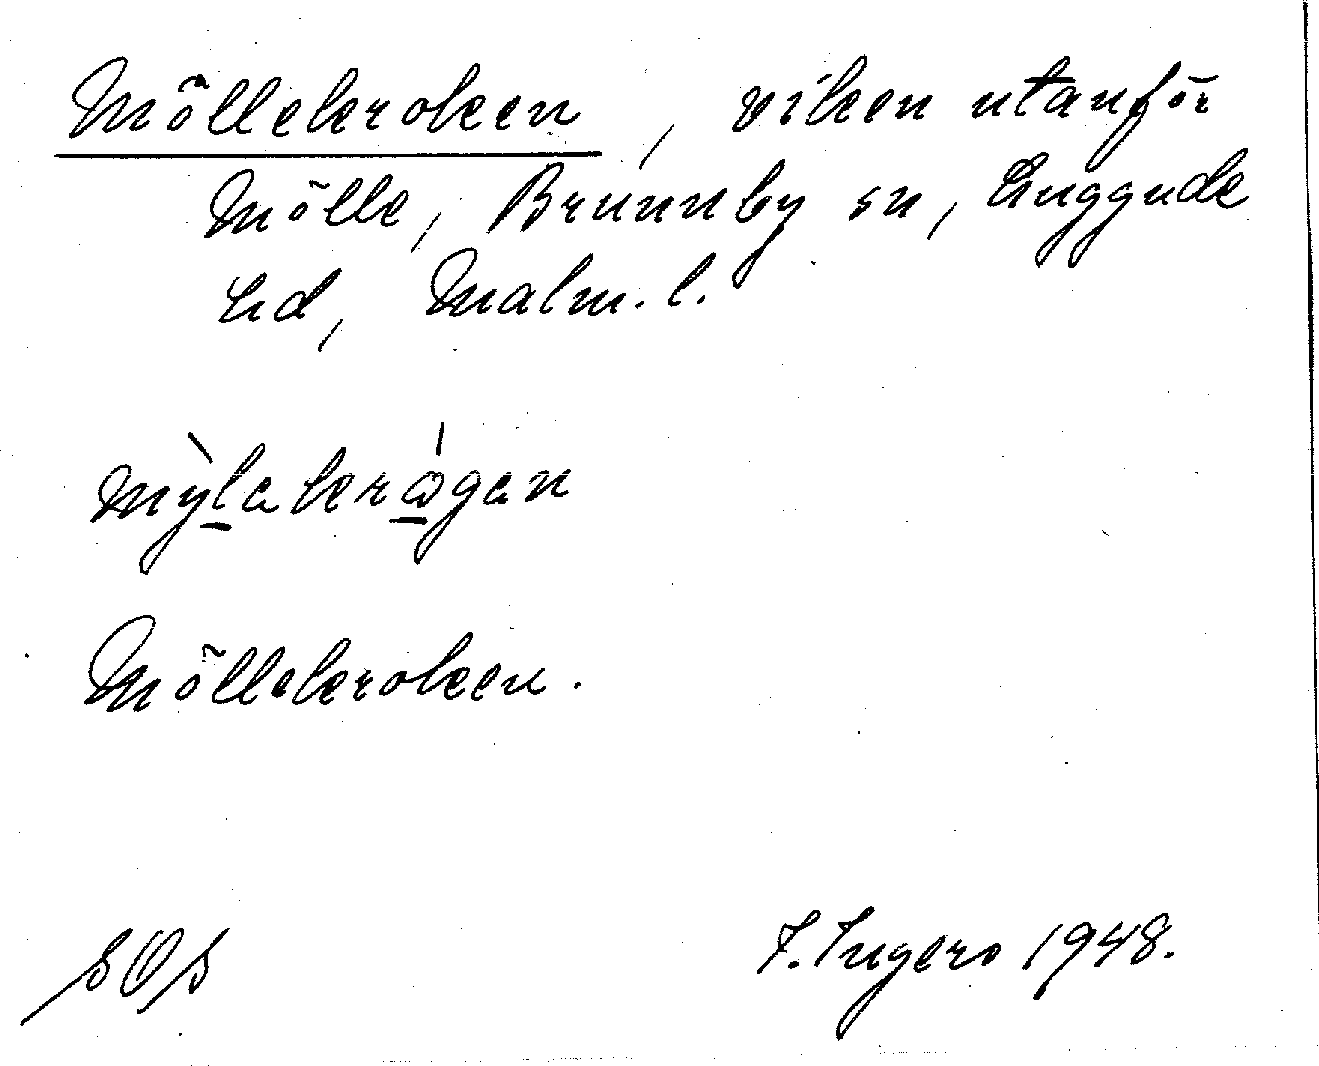 Möllekroken, viken utanför
Mölle, Brunnby sn, Luggude
hd, Malm. l.
mỳl̠akrǫ́gan
Möllekroken.
SOS
I. Ingers 1948.